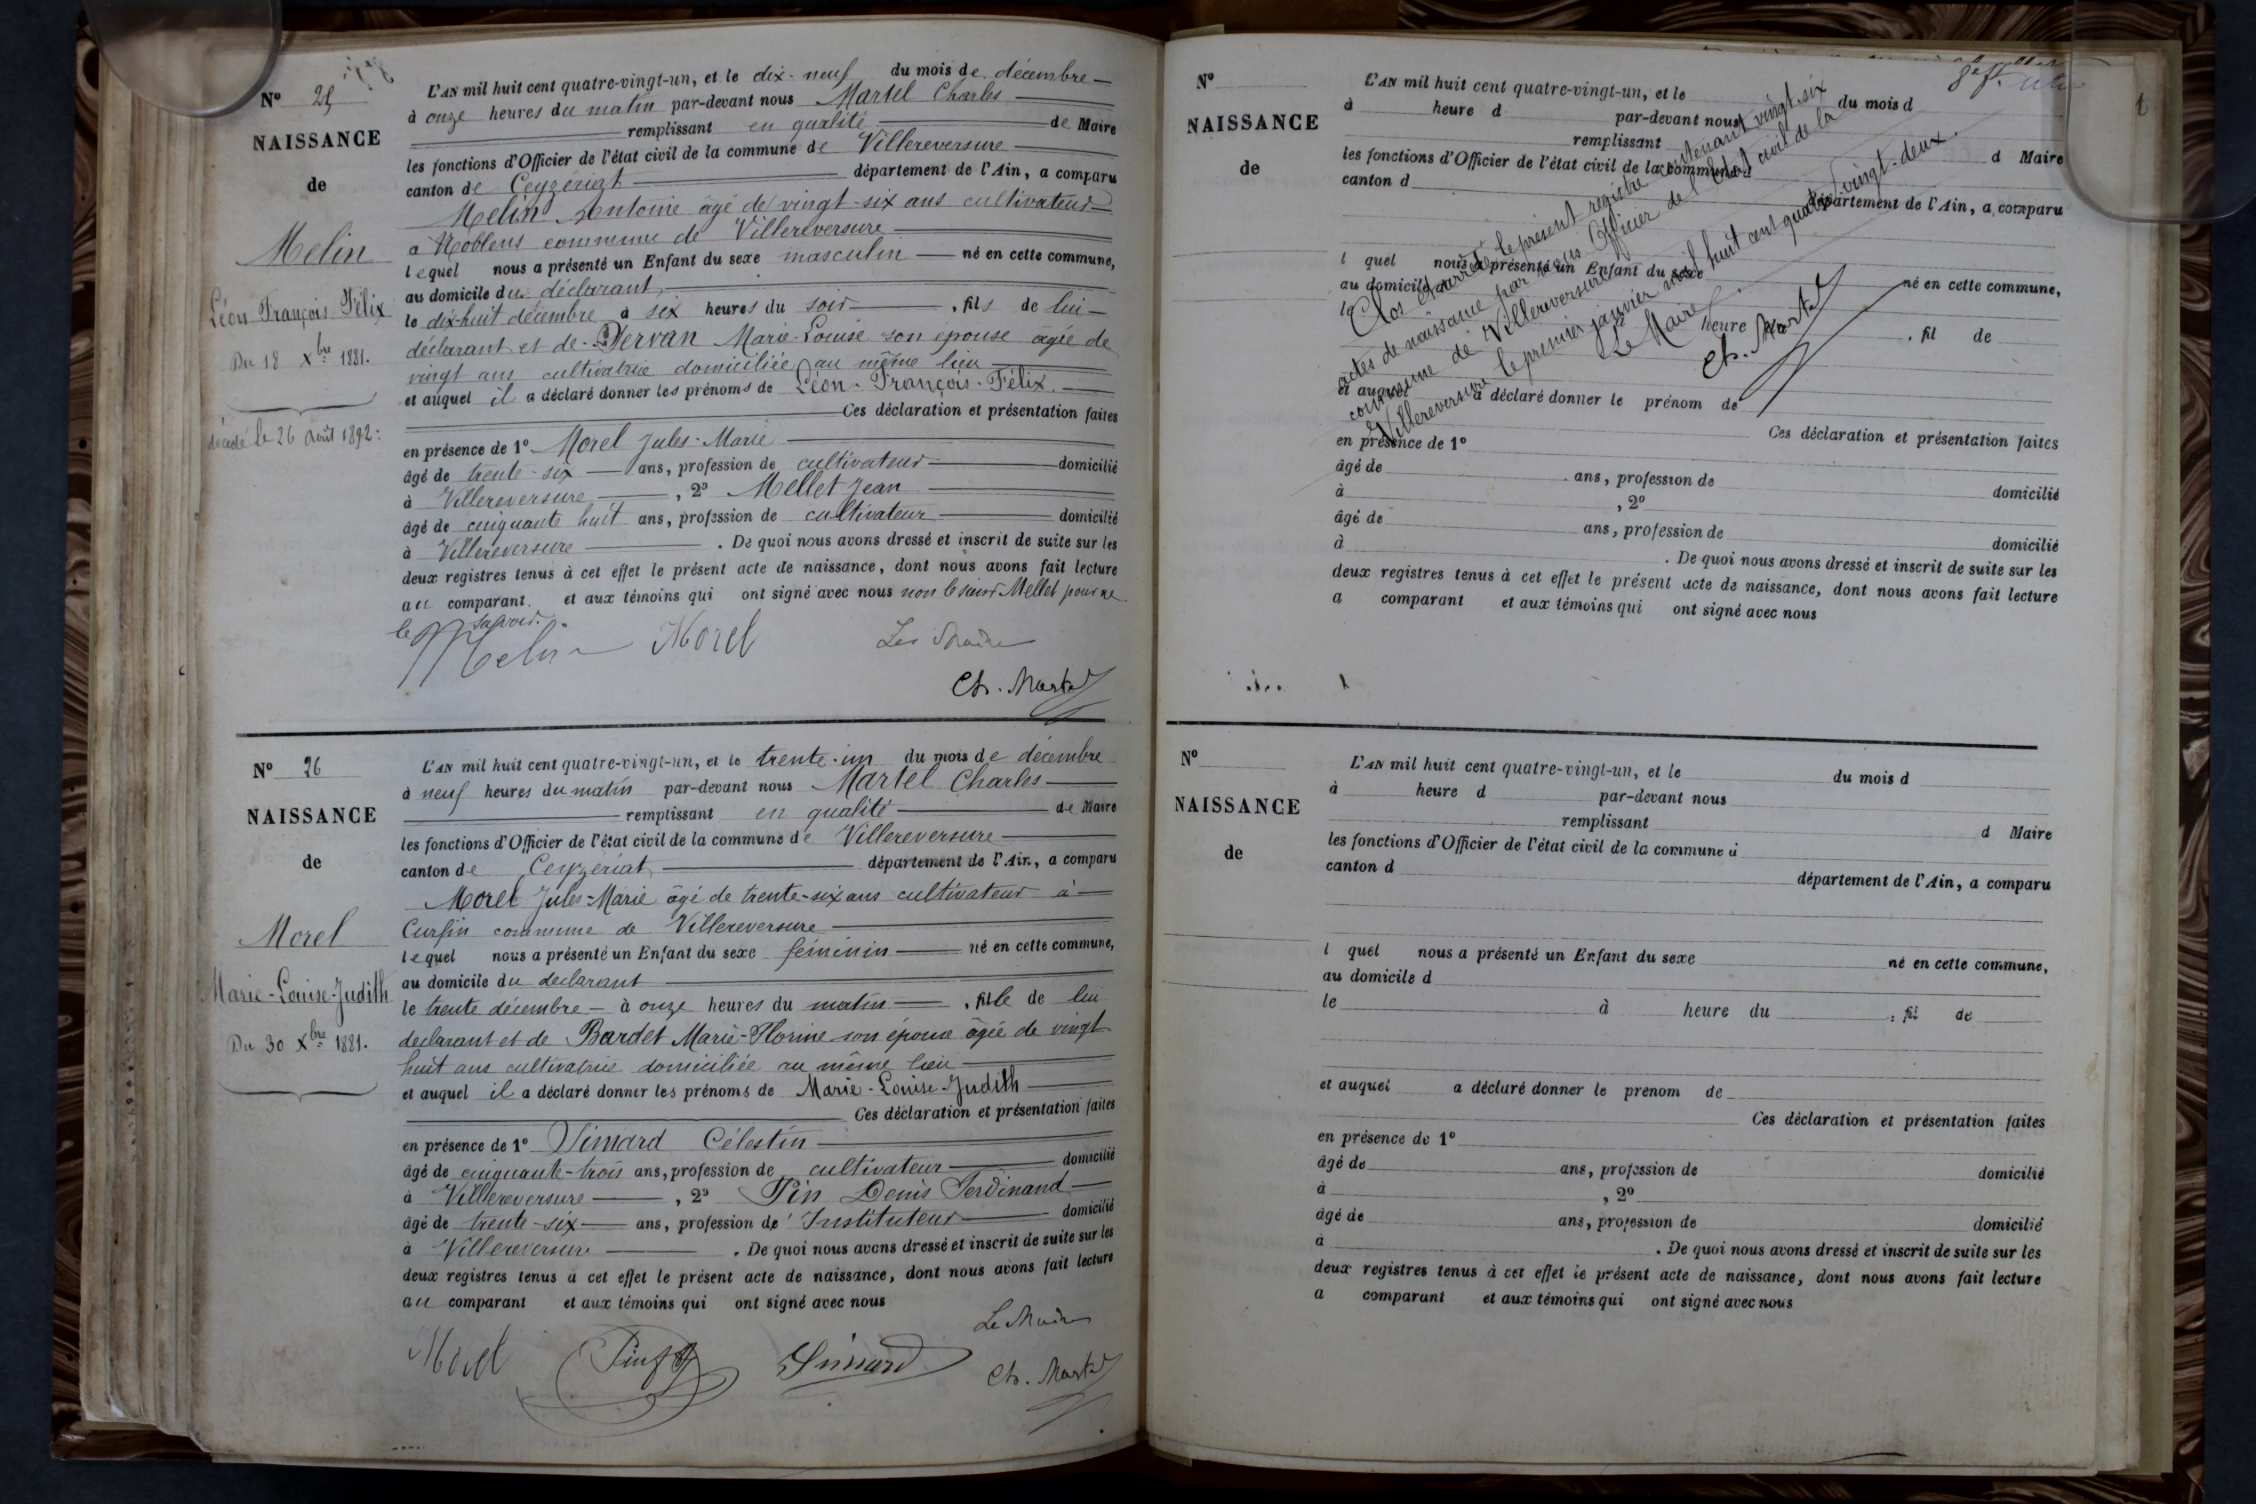 N° 25
NAISSANCE
de
Melin
Léon François Félix
Du 18 Xbre 1881.
décédé le 26 Août 1892.
L'AN mil huit cent quatre-vingt-un, et le dix-neuf du mois de décembre
à onze heures du matin par-devant nous Martel Charles
remplissant en qualité de Maire
les fonctions d'Officier de l'état civil de la commune de Villereversure
canton de Ceyzériat département de l'Ain, a comparu
Melin Antoine âgé de vingt-six ans cultivateur
a Noblens commune de Villereversure
lequel nous a présenté un Enfant du sexe masculin né en cette commune,
au domicile du déclarant
le dix-huit décembre à six heures du soir, fils de lui
déclarant et de Servan Marie Louise son épouse âgée de
vingt ans cultivatrice domiciliée au même lieu
et auquel il a déclaré donner les prénoms de Léon-François-Félix.
Ces déclaration et présentation faites
en présence de 1° Morel Jules-Marie
âgé de trente-six ans, profession de cultivateur domicilié
à Villereversure, 2° Mellet Jean
âgé de cinquante huit ans, profession de cultivateur domicilié
à Villereversure. De quoi nous avons dressé et inscrit de suite sur les
deux registres tenus à cet effet le présent acte de naissance, dont nous avons fait lecture
au comparant et aux témoins qui ont signé avec nous non le sieur Mellet pour ne
le savoir.
Melin Morel Le Maire
Ch. Martel
N° 26
NAISSANCE
de
Morel
Marie-Louise-Judith
Du 30 Xbre 1881.
L'AN mil huit cent quatre-vingt-un, et le trente-un du mois de décembre
à neuf heures du matin par-devant nous Martel Charles
remplissant en qualité de Maire
les fonctions d'Officier de l'état civil de la commune de Villereversure
canton de Ceyzériat département de l'Ain, a comparu
Morel Jules-Marie âgé de trente-six ans cultivateur à
Curfin commune de Villereversure
lequel nous a présenté un Enfant du sexe féminin né en cette commune,
au domicile du declarant
le trente décembre à onze heures du matin, fille de lui
declarant et de Bardet Marie-Florine son épouse âgée de vingt
huit ans cultivatrice domiciliée au même lieu
et auquel il a déclaré donner les prénoms de Marie-Louise-Judith
Ces déclaration et présentation faites
en présence de 1° Simard Célestin
âgé de cinquante-trois ans, profession de cultivateur domicilié
à Villereversure, 2° Pin Denis Ferdinand
âgé de trente-six ans, profession de Instituteur domicilié
à Villereversure. De quoi nous avons dressé et inscrit de suite sur les
deux registres tenus à cet effet le présent acte de naissance, dont nous avons fait lecture
au comparant et aux témoins qui ont signé avec nous
Le Maire
Morel Pin Simard Ch. Martel
N°
NAISSANCE
de
L'AN mil huit cent quatre-vingt-un, et le du mois d
à heure d par-devant nous
remplissant d Maire
les fonctions d'Officier de l'état civil de la commune d
canton d département de l'Ain, a comparu
l quel nous a présenté un Enfant du sexe né en cette commune,
au domicile d
le heure , fil de
et auquel a déclaré donner le prénom de
Ces déclaration et présentation faites
en présence de 1°
âgé de ans, profession de domicilié
à , 2°
âgé de ans, profession de domicilié
à . De quoi nous avons dressé et inscrit de suite sur les
deux registres tenus à cet effet le présent acte de naissance, dont nous avons fait lecture
a comparant et aux témoins qui ont signé avec nous
Clos et arrêté le présent registre contenant vingt-six
actes de naissance par nous Officier de l'Etat civil de la
commune de Villereversure
Villereversure le premier janvier mil huit cent quatre vingt-deux.
Le Maire
Ch. Martel
N°
NAISSANCE
de
L'AN mil huit cent quatre-vingt-un, et le du mois d
à heure d par-devant nous
remplissant d Maire
les fonctions d'Officier de l'état civil de la commune d
canton d département de l'Ain, a comparu
l quel nous a présenté un Enfant du sexe né en cette commune,
au domicile d
le à heure du , fil de
et auquel a déclaré donner le prenom de
Ces déclaration et présentation faites
en présence de 1°
âgé de ans, profession de domicilié
à , 2°
âgé de ans, profession de domicilié
à . De quoi nous avons dressé et inscrit de suite sur les
deux registres tenus à cet effet le présent acte de naissance, dont nous avons fait lecture
a comparant et aux témoins qui ont signé avec nous